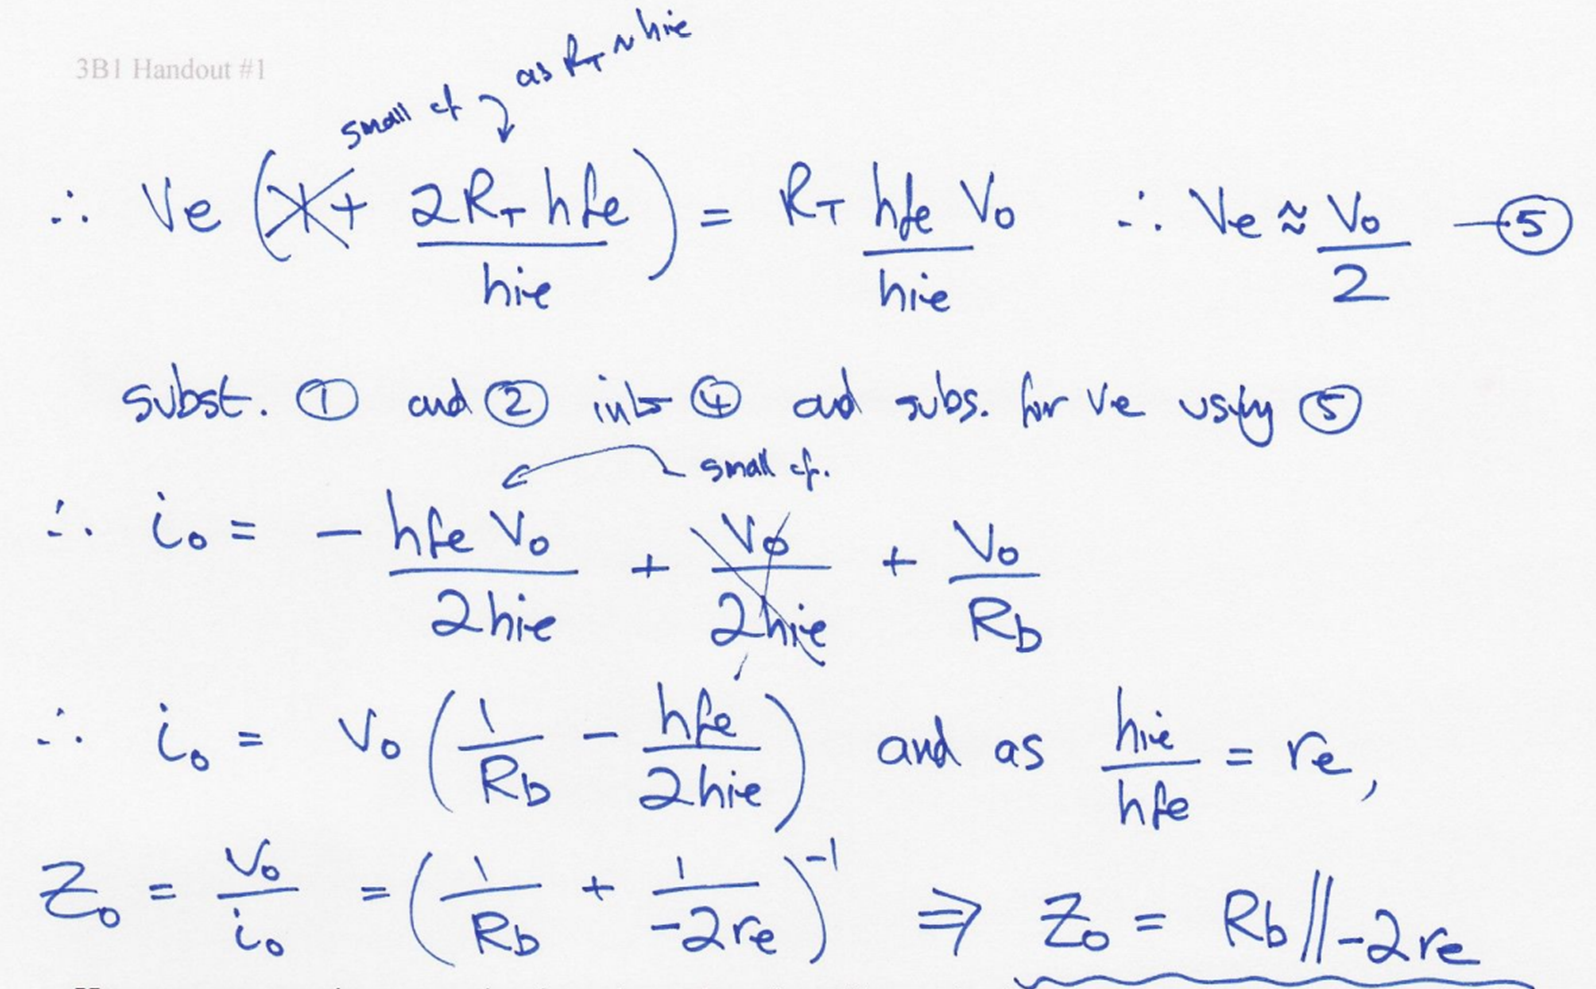 3B1 Handout #1
small cf as RT ~ hie
∴ Ve (1 + 2RT hfe / hie) = RT hfe Vo / hie ∴ Ve ≈ Vo / 2 — ⑤
subst. ① and ② into ④ and subs. for Ve using ⑤
small cf.
∴ io = - hfe Vo / 2hie + Vo / 2hie + Vo / Rb
∴ io = Vo (1 / Rb - hfe / 2hie) and as hie / hfe = re,
Zo = Vo / io = (1 / Rb + 1 / -2re)^-1 ⇒ Zo = Rb // -2re